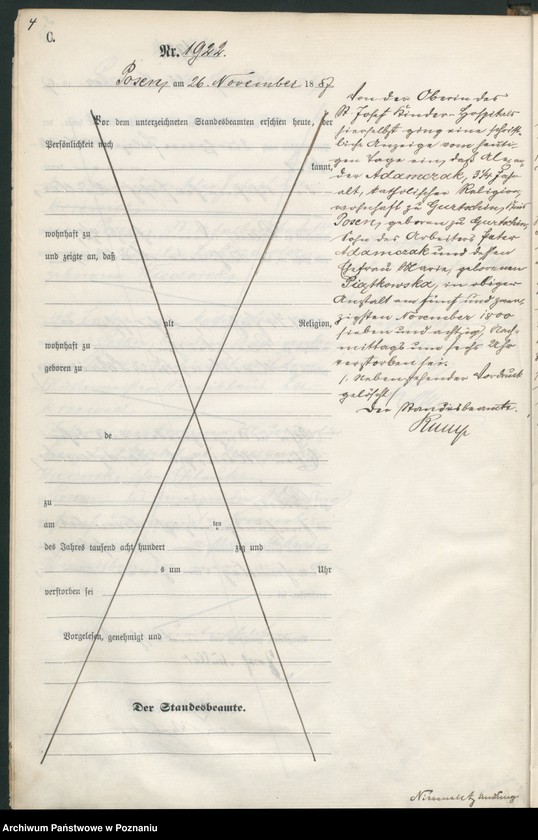 4
C.
Nr. 1922.
Posen, am 26. November 1887
Vor dem unterzeichneten Standesbeamten erschien heute, der
Persönlichkeit nach
kannt,
wohnhaft zu
und zeigte an, daß
alt Religion,
wohnhaft zu
geboren zu
de
zu
am ten
des Jahres tausend acht hundert zig und
s um Uhr
verstorben sei
Vorgelesen, genehmigt und
Der Standesbeamte.
Von der Oberin des
St. Josef Kinder-Hospitals
hierselbst ging eine schrift-
liche Anzeige vom heuti-
gen Tage ein, daß Alexan-
der Adamczak, 3¼ Jahr
alt, katholischer Religion,
wohnhaft zu Gurtschin, Kreis
Posen, geboren zu Gurtschin,
Sohn des Arbeiters Peter
Adamczak und dessen
Ehefrau Marie, geborenen
Piątkowska, in obiger
Anstalt am fünf und zwan-
zigsten November 1800
sieben und achtzig, Nach-
mittags um sechs Uhr
verstorben sei.
Nebenstehender Vordruck
gelöscht
Der Standesbeamte.
Archiwum Państwowe w Poznaniu